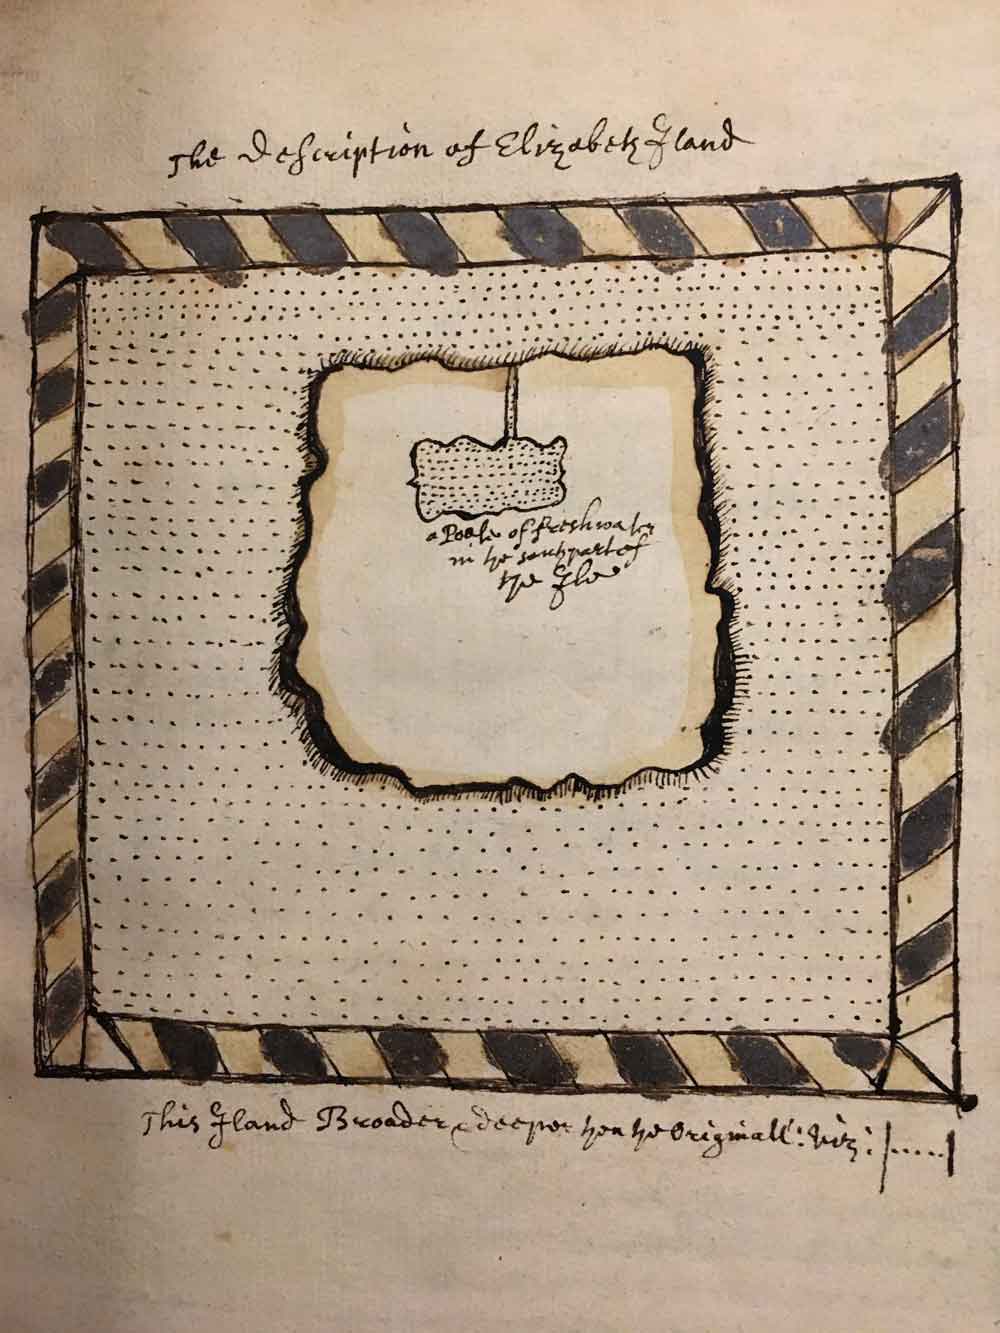 The description of Elizabeth Iland
a Poole of freshwater
in the southpart of
the Ile
This Iland Broader & deeper then the Originall: viz: |.....|